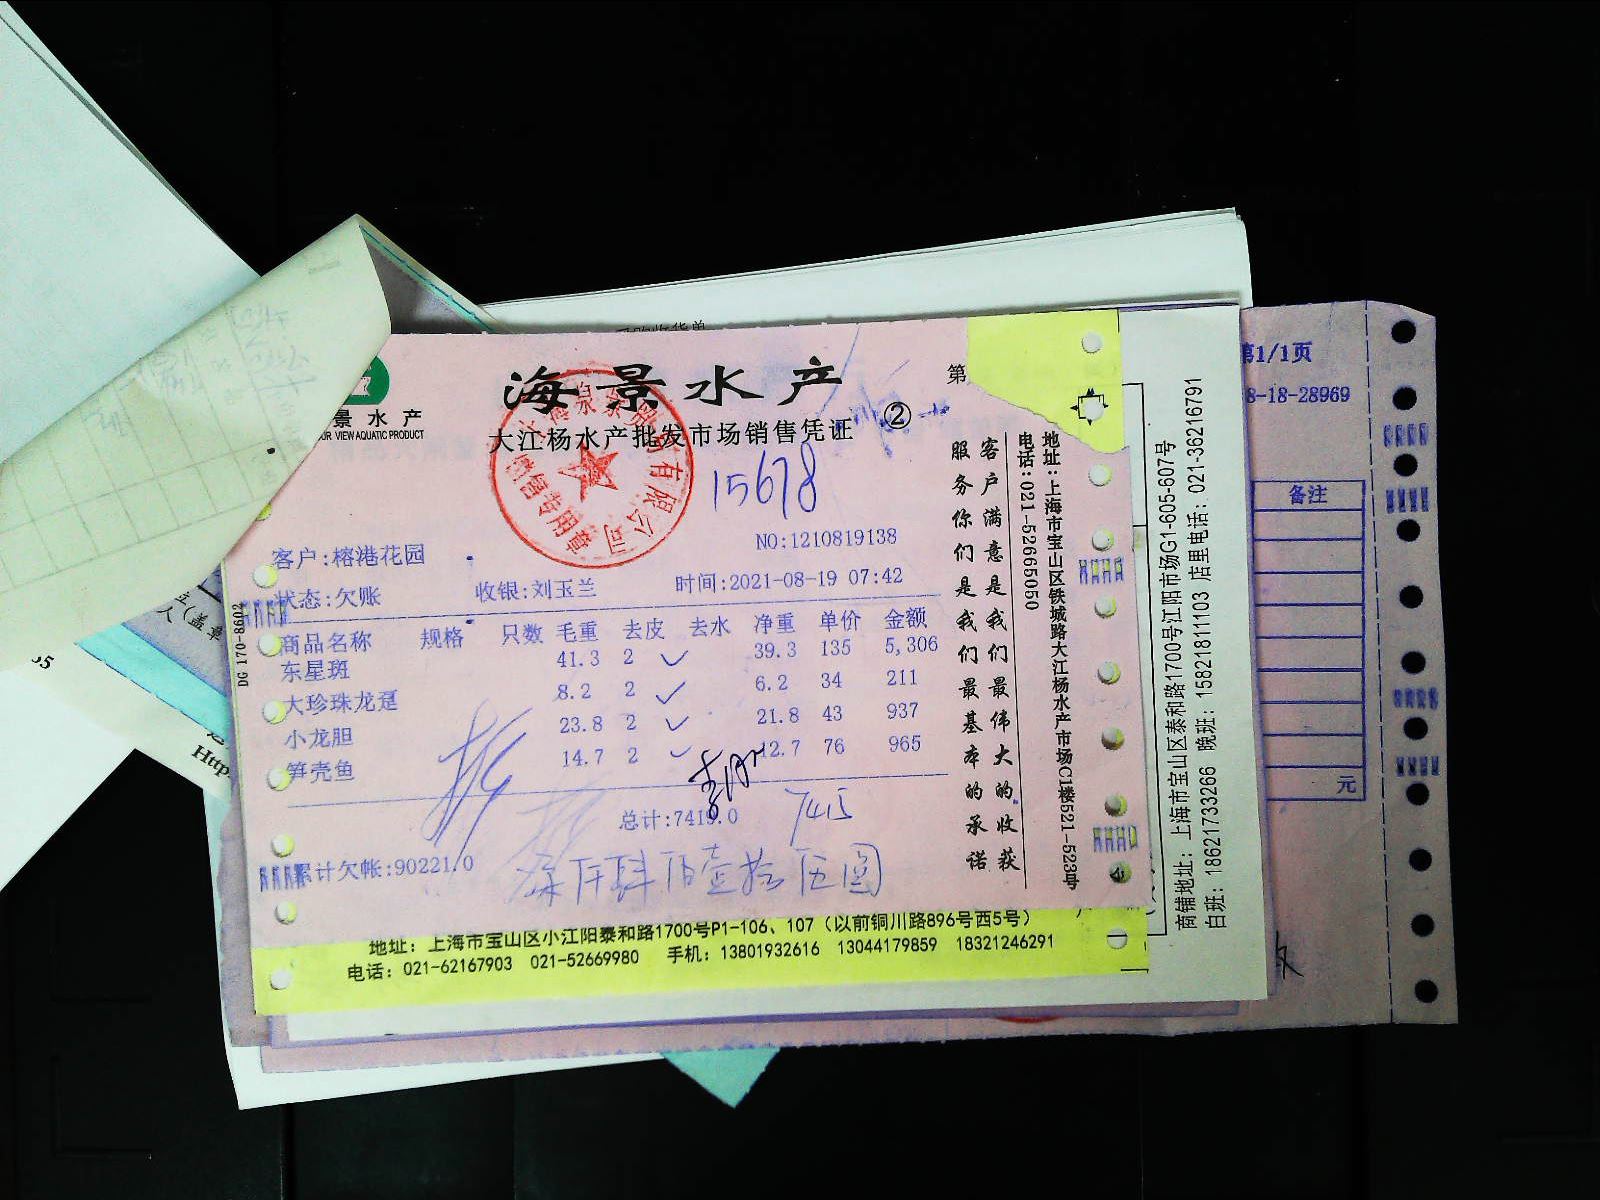 海景水产
景水产
VIEW AQUATIC PRODUCT
大江杨水产批发市场销售凭证 ②
第
15678
NO:1210819138
客户:榕港花园
状态:欠账 收银:刘玉兰 时间:2021-08-19 07:42
商品名称 规格 只数 毛重 去皮 去水 净重 单价 金额
东星斑 41.3 2 39.3 135 5,306
大珍珠龙趸 8.2 2 6.2 34 211
小龙胆 23.8 2 21.8 43 937
笋壳鱼 14.7 2 12.7 76 965
总计:7419.0 7415
累计欠帐:90221.0
柒仟肆佰壹拾伍圆
客户满意是我们最伟大的收获
服务你们是我们最基本的承诺
地址:上海市宝山区铁城路大江杨水产市场C1楼521-523号
电话:021-52665050
地址:上海市宝山区小江阳泰和路1700号P1-106、107(以前铜川路896号西5号)
电话:021-62167903 021-52669980 手机:13801932616 13044179859 18321246291
商铺地址:上海市宝山区泰和路1700号江阳市场G1-605-607号
白班:18621733266 晚班:15821811103 店里电话:021-36216791
DG 170-8602
第1/1页
8-18-28969
备注
元
人(盖章
Http
55